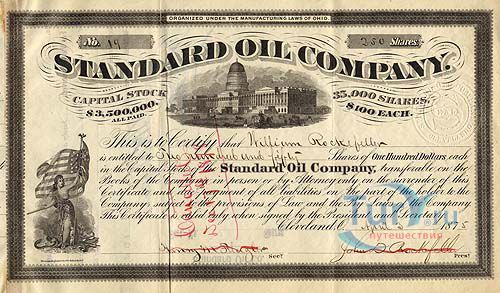 ORGANIZED UNDER THE MANUFACTURING LAWS OF OHIO.
No. 19
250 Shares
STANDARD OIL COMPANY.
CAPITAL STOCK
$3,500,000.
ALL PAID.
35,000 SHARES,
$100 EACH.
This is to Certify that William Rockefeller
is entitled to Two hundred and fifty Shares of One Hundred Dollars, each
in the Capital Stock of the Standard Oil Company, transferable on the
Books of the Company, in person or by Attorney only on the surrender of this
Certificate and the payment of all liabilities on the part of the holder to the
Company, subject to the provisions of Law and the By Laws of the company
This Certificate is valid only when signed by the President and Secretary.
Cleveland, April 3 1875
Secy.
John D. Rockefeller
Prest.
путешествия